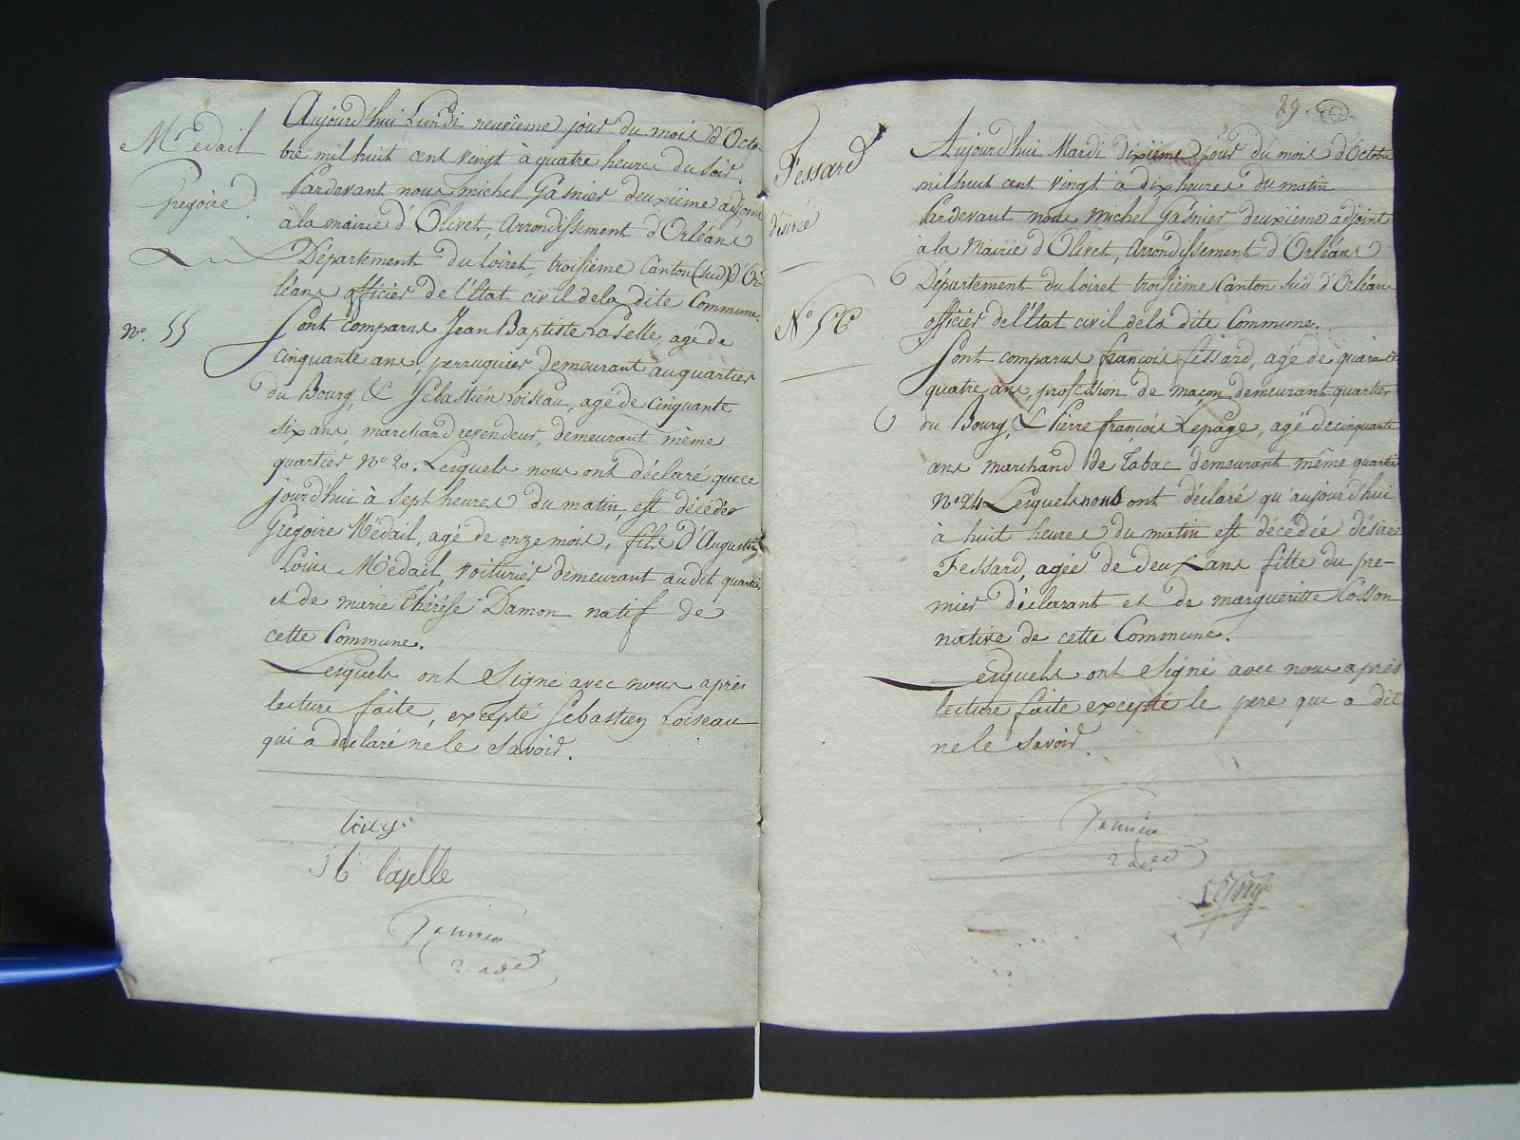 Médail
Gregoire.
n°. 55
Aujourd'hui Lundi neuvieme jour du mois d'Octo-
bre mil huit cent vingt à quatre heures du soir.
Pardevant nous michel Gasnier deuxiéme adjoint
à la mairie d'Olivet, Arrondissement d'Orléans
Département du loiret, troisiéme Canton (sud) d'Or-
léans officier de l'État civil de la dite Commune.
Sont comparus Jean Baptiste Laselle, agé de
cinquante ans, perruquier demeurant au quartier
du Bourg, & Sébastién Loiseau, agé de Cinquante
six ans, marchand revendeur, demeurant même
quartier N° 20. Lesquels nous ont déclaré que ce
jourd'hui à sept heures du matin, est décédé
Gregoire Médail, agé de onze mois, fils d'Augustin
Louis Médail, voiturier demeurant audit quartier
et de marie Thérése Damon natif de
cette Commune.
Lesquels ont Signé avec nous après
lecture faite, excepté Sebastien Loiseau
qui a declaré ne le Savoir.
j b laselle
Gasnier
2 adj
29.
Fessard
désirée
N° 56
Aujourd'hui Mardi dixiéme jour du mois d'Octobre
mil huit cent vingt à dix heures du matin
Pardevant nous Michel Gasnier deuxiéme adjoint
à la Mairie d'Olivet, Arrondissement d'Orléans
Département du loiret troisiéme Canton sud d'Orléans
officier de l'État civil de la dite Commune.
Sont comparus françois fessard, agé de quarante
quatre ans, profession de maçon demeurant quartier
du Bourg, & Pierre françois Lepage, agé de cinquante
ans marchand de Tabac demeurant même quartier
N° 24 Lesquels nous ont déclaré qu'aujourd'hui
à huit heures du matin est décédée désirée
Fessard, agée de deux ans fille du pre-
mier déclarant et de margueritte Cosson
native de cette Commune.
Lesquels ont Signé avec nous après
lecture faite excepté le pere qui a dit
ne le Savoir.
Gasnier
2 adj